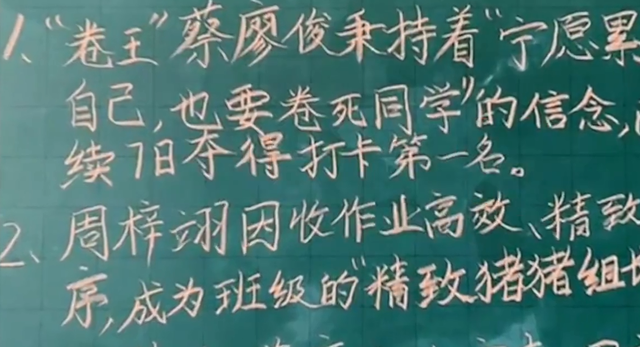 1、“卷王”蔡廖俊秉持着“宁愿累
自己,也要卷死同学”的信念,
续7日夺得打卡第一名。
2、周梓翊因收作业高效、精致
序,成为班级的“精致猪猪组